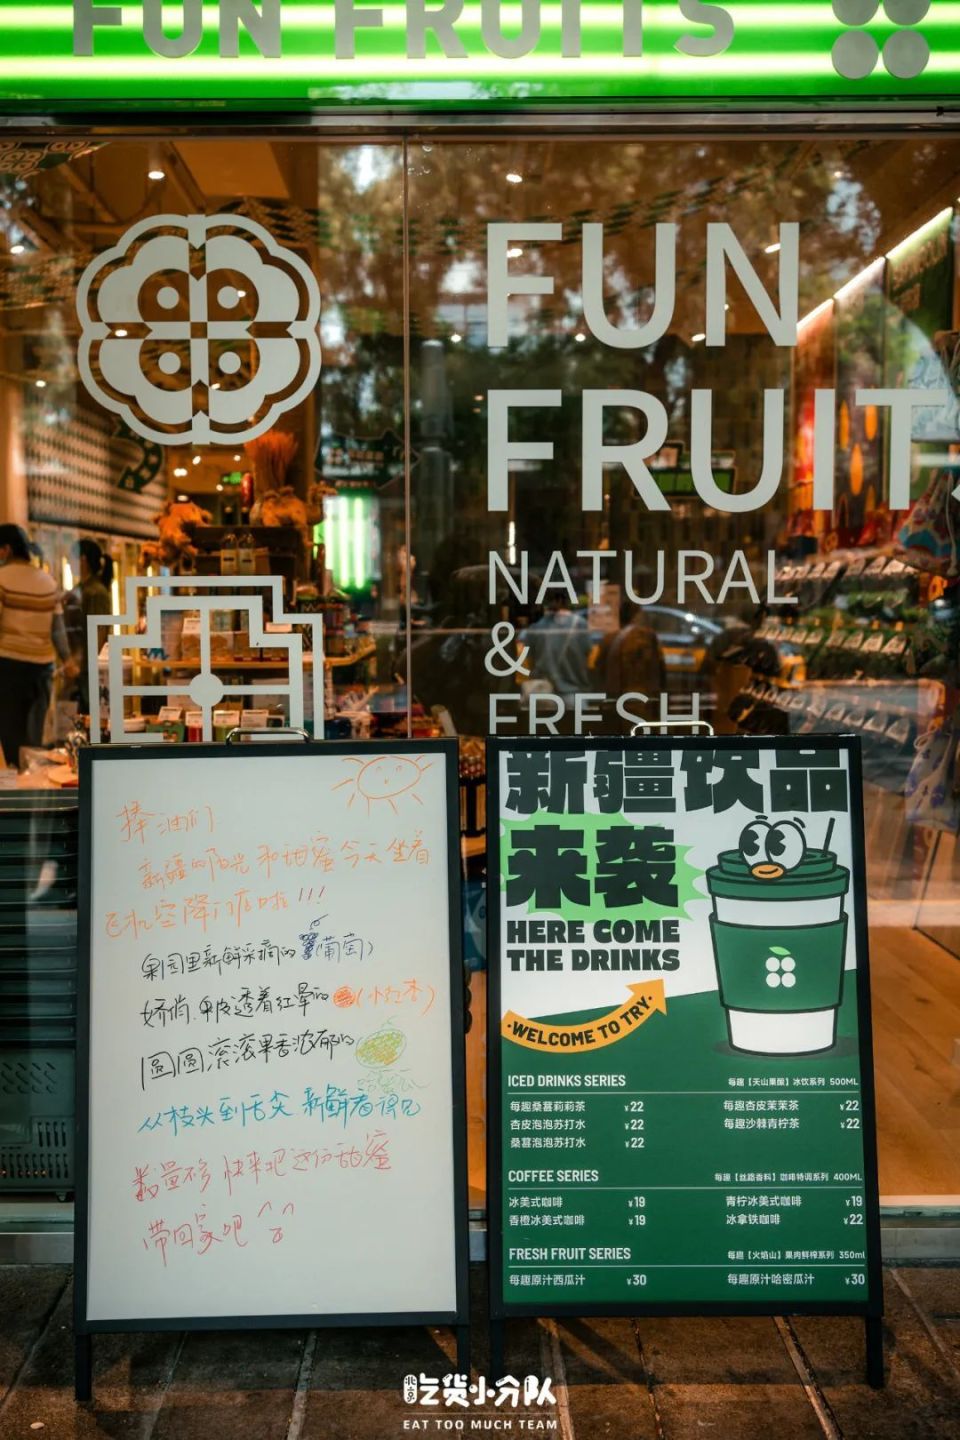 FUN FRUITS
FUN
FRUITS
NATURAL
&
FRESH
捧油们
新疆的阳光和甜蜜今天坐着
飞机空降门店啦!!!
果园里新鲜采摘的(葡萄)
娇俏、果皮透着红晕的(小红杏)
圆圆滚滚果香浓郁的
从枝头到舌尖 新鲜看得见
数量不多 快来把这份甜蜜
带回家吧
新疆饮品
来袭
HERE COME
THE DRINKS
·WELCOME TO TRY·
ICED DRINKS SERIES 每趣【天山果酿】冰饮系列 500ML
每趣桑葚莉莉茶 ¥22 每趣杏皮茉茉茶 ¥22
杏皮泡泡苏打水 ¥22 每趣沙棘青柠茶 ¥22
桑葚泡泡苏打水 ¥22
COFFEE SERIES 每趣【丝路香料】咖啡特调系列 400ML
冰美式咖啡 ¥19 青柠冰美式咖啡 ¥19
香橙冰美式咖啡 ¥19 冰拿铁咖啡 ¥22
FRESH FRUIT SERIES 每趣【火焰山】果肉鲜榨系列 350ml
每趣原汁西瓜汁 ¥30 每趣原汁哈密瓜汁 ¥30
北京吃货小分队
EAT TOO MUCH TEAM